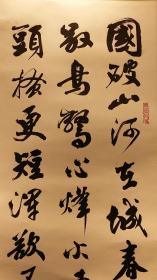 國破山河在城春
別鳥驚心烽火
頭搔更短渾欲不